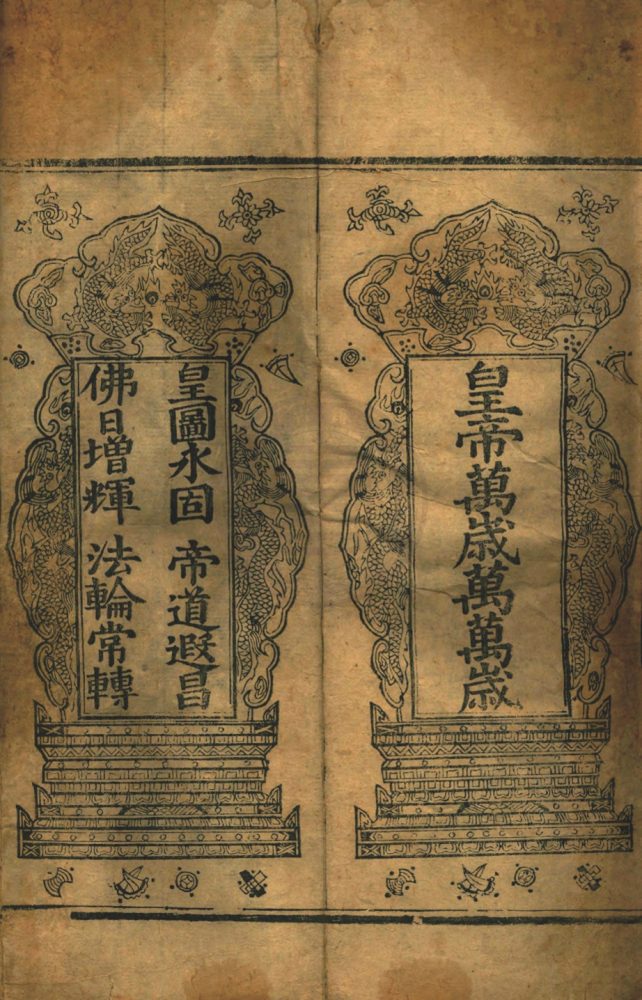 皇帝萬歲萬萬歲
皇圖永固 帝道遐昌
佛日增輝 法輪常轉